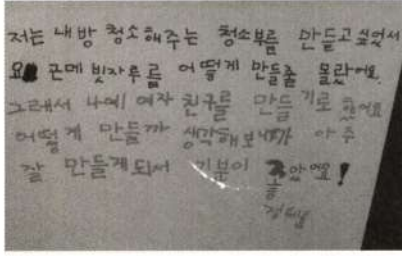 저는 내방 청소해주는 청소부를 만들고 싶었서
요 근데 빗자루를 어떻게 만들줄 몰랐어요.
그래서 나에 여자 친구를 만들기로 했어요
어떻게 만들까 생각해보 아주
잘 만들게되서 기분이 좋았어요!